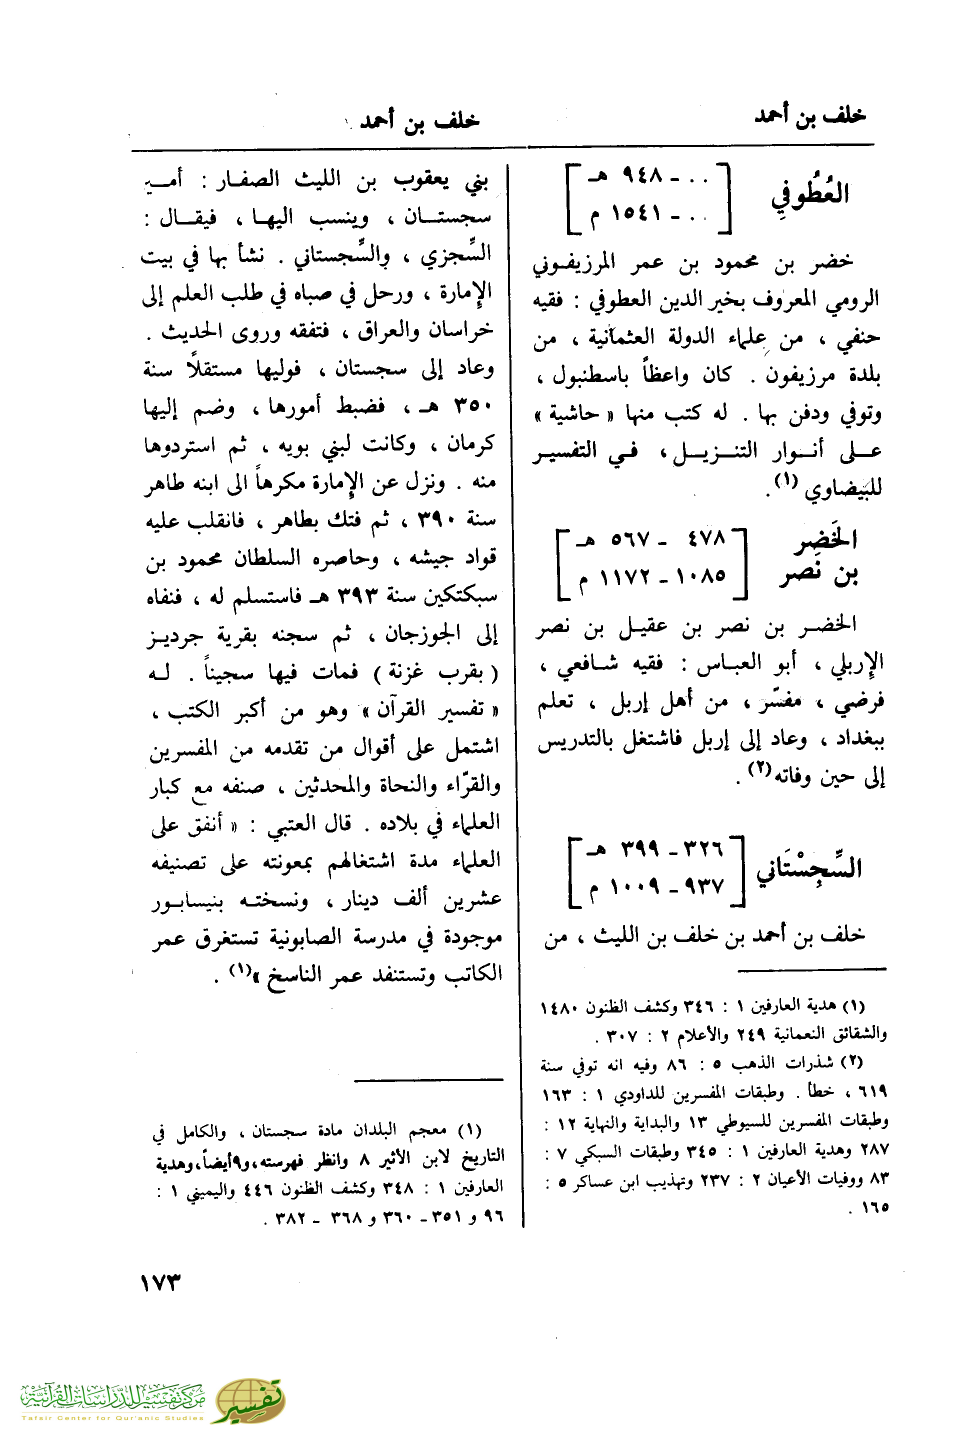 خلف بن أحمد
خلف بن أحمد
العُطُوفي
[ .. ـ ٩٤٨ هـ
.. ـ ١٥٤١ م ]
خضر بن محمود بن عمر المرزيفوني
الرومي المعروف بخير الدين العطوفي : فقيه
حنفي ، من علماء الدولة العثمانية ، من
بلدة مرزيفون . كان واعظاً باسطنبول ،
وتوفي ودفن بها . له كتب منها « حاشية »
على أنوار التنزيل ، في التفسير
للبيضاوي (١) .
الخَضِر
بن نصر
[ ٤٧٨ ـ ٥٦٧ هـ
١٠٨٥ ـ ١١٧٢ م ]
الخضر بن نصر بن عقيل بن نصر
الإربلي ، أبو العباس : فقيه شافعي ،
فرضي ، مفسّر ، من أهل إربل ، تعلم
ببغداد ، وعاد إلى إربل فاشتغل بالتدريس
إلى حين وفاته (٢) .
السِّجِسْتَاني
[ ٣٢٦ ـ ٣٩٩ هـ
٩٣٧ ـ ١٠٠٩ م ]
خلف بن أحمد بن خلف بن الليث ، من
(١) هدية العارفين ١ : ٣٤٦ وكشف الظنون ١٤٨٠
والشقائق النعمانية ٢٤٩ والأعلام ٢ : ٣٠٧ .
(٢) شذرات الذهب ٥ : ٨٦ وفيه انه توفي سنة
٦١٩ ، خطأ . وطبقات المفسرين للداودي ١ : ١٦٣
وطبقات المفسرين للسيوطي ١٣ والبداية والنهاية ١٢ :
٢٨٧ وهدية العارفين ١ : ٣٤٥ وطبقات السبكي ٧ :
٨٣ ووفيات الأعيان ٢ : ٢٣٧ وتهذيب ابن عساكر ٥ :
١٦٥ .
بني يعقوب بن الليث الصفار : أمير
سجستان ، وينسب اليها ، فيقال :
السِّجزي ، والسِّجستاني . نشأ بها في بيت
الإمارة ، ورحل في صباه في طلب العلم إلى
خراسان والعراق ، فتفقه وروى الحديث .
وعاد إلى سجستان ، فوليها مستقلاً سنة
٣٥٠ هـ ، فضبط أمورها ، وضم إليها
كرمان ، وكانت لبني بويه ، ثم استردوها
منه . ونزل عن الإمارة مكرهاً الى ابنه طاهر
سنة ٣٩٠ ، ثم فتك بطاهر ، فانقلب عليه
قواد جيشه ، وحاصره السلطان محمود بن
سبكتكين سنة ٣٩٣ هـ فاستسلم له ، فنفاه
إلى الجوزجان ، ثم سجنه بقرية جرديز
( بقرب غزنة ) فمات فيها سجيناً . له
« تفسير القرآن » وهو من أكبر الكتب ،
اشتمل على أقوال من تقدمه من المفسرين
والقرّاء والنحاة والمحدثين ، صنفه مع كبار
العلماء في بلاده . قال العتبي : « أنفق على
العلماء مدة اشتغالهم بمعونته على تصنيفه
عشرين ألف دينار ، ونسخته بنيسابور
موجودة في مدرسة الصابونية تستغرق عمر
الكاتب وتستنفد عمر الناسخ » (١) .
(١) معجم البلدان مادة سجستان ، والكامل في
التاريخ لابن الأثير ٨ وانظر فهرسته ، و٩ أيضاً ، وهدية
العارفين ١ : ٣٤٨ وكشف الظنون ٤٤٦ واليميني ١ :
٩٦ و ٣٥١ ـ ٣٦٠ و ٣٦٨ ـ ٣٨٢ .
١٧٣
مركز تفسير للدراسات القرآنية
Tafsir Center for Qur'anic Studies
تفسير